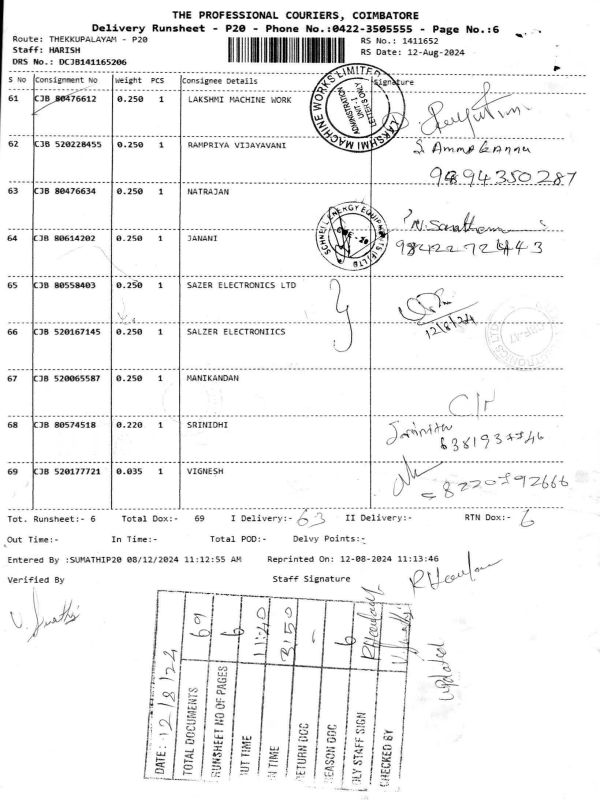 THE PROFESSIONAL COURIERS, COIMBATORE
Delivery Runsheet - P20 - Phone No.:0422-3505555 - Page No.:6
Route: THEKKUPALAYAM - P20
RS No.: 1411652
Staff: HARISH
RS Date: 12-Aug-2024
DRS No.: DCJB141165206
S No Consignment No Weight PCS Consignee Details Signature
61 CJB 80476612 0.250 1 LAKSHMI MACHINE WORK
LAKSHMI MACHINE WORKS LIMITED
ADMINISTRATION
UNIT-1
LETTERS ONLY
62 CJB 520228455 0.250 1 RAMPRIYA VIJAYAVANI
63 CJB 80476634 0.250 1 NATRAJAN
SCHNELL ENERGY EQUIPMENTS (P) LTD
64 CJB 80614202 0.250 1 JANANI
9842272443
65 CJB 80558403 0.250 1 SAZER ELECTRONICS LTD
12/8/24
66 CJB 520167145 0.250 1 SALZER ELECTRONIICS
67 CJB 520065587 0.250 1 MANIKANDAN
68 CJB 80574518 0.220 1 SRINIDHI
69 CJB 520177721 0.035 1 VIGNESH
8220792666
Tot. Runsheet:- 6 Total Dox:- 69 I Delivery:- 63 II Delivery:- RTN Dox:- 6
Out Time:- In Time:- Total POD:- Delvy Points:-
Entered By :SUMATHIP20 08/12/2024 11:12:55 AM Reprinted On: 12-08-2024 11:13:46
Verified By Staff Signature
DATE: 12/8/24
TOTAL DOCUMENTS 69
RUNSHEET NO OF PAGES 6
OUT TIME 11:40
IN TIME 3:50
RETURN DOC -
REASON DOC 6
DLY STAFF SIGN
CHECKED BY
updated